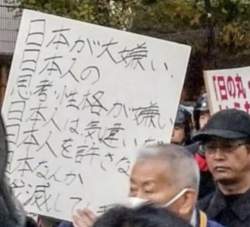 日本が大嫌い、
日本人の
思考、性格が嫌い
日本人は気違い
日本人を許さな
日本なんか
滅して
「日の丸